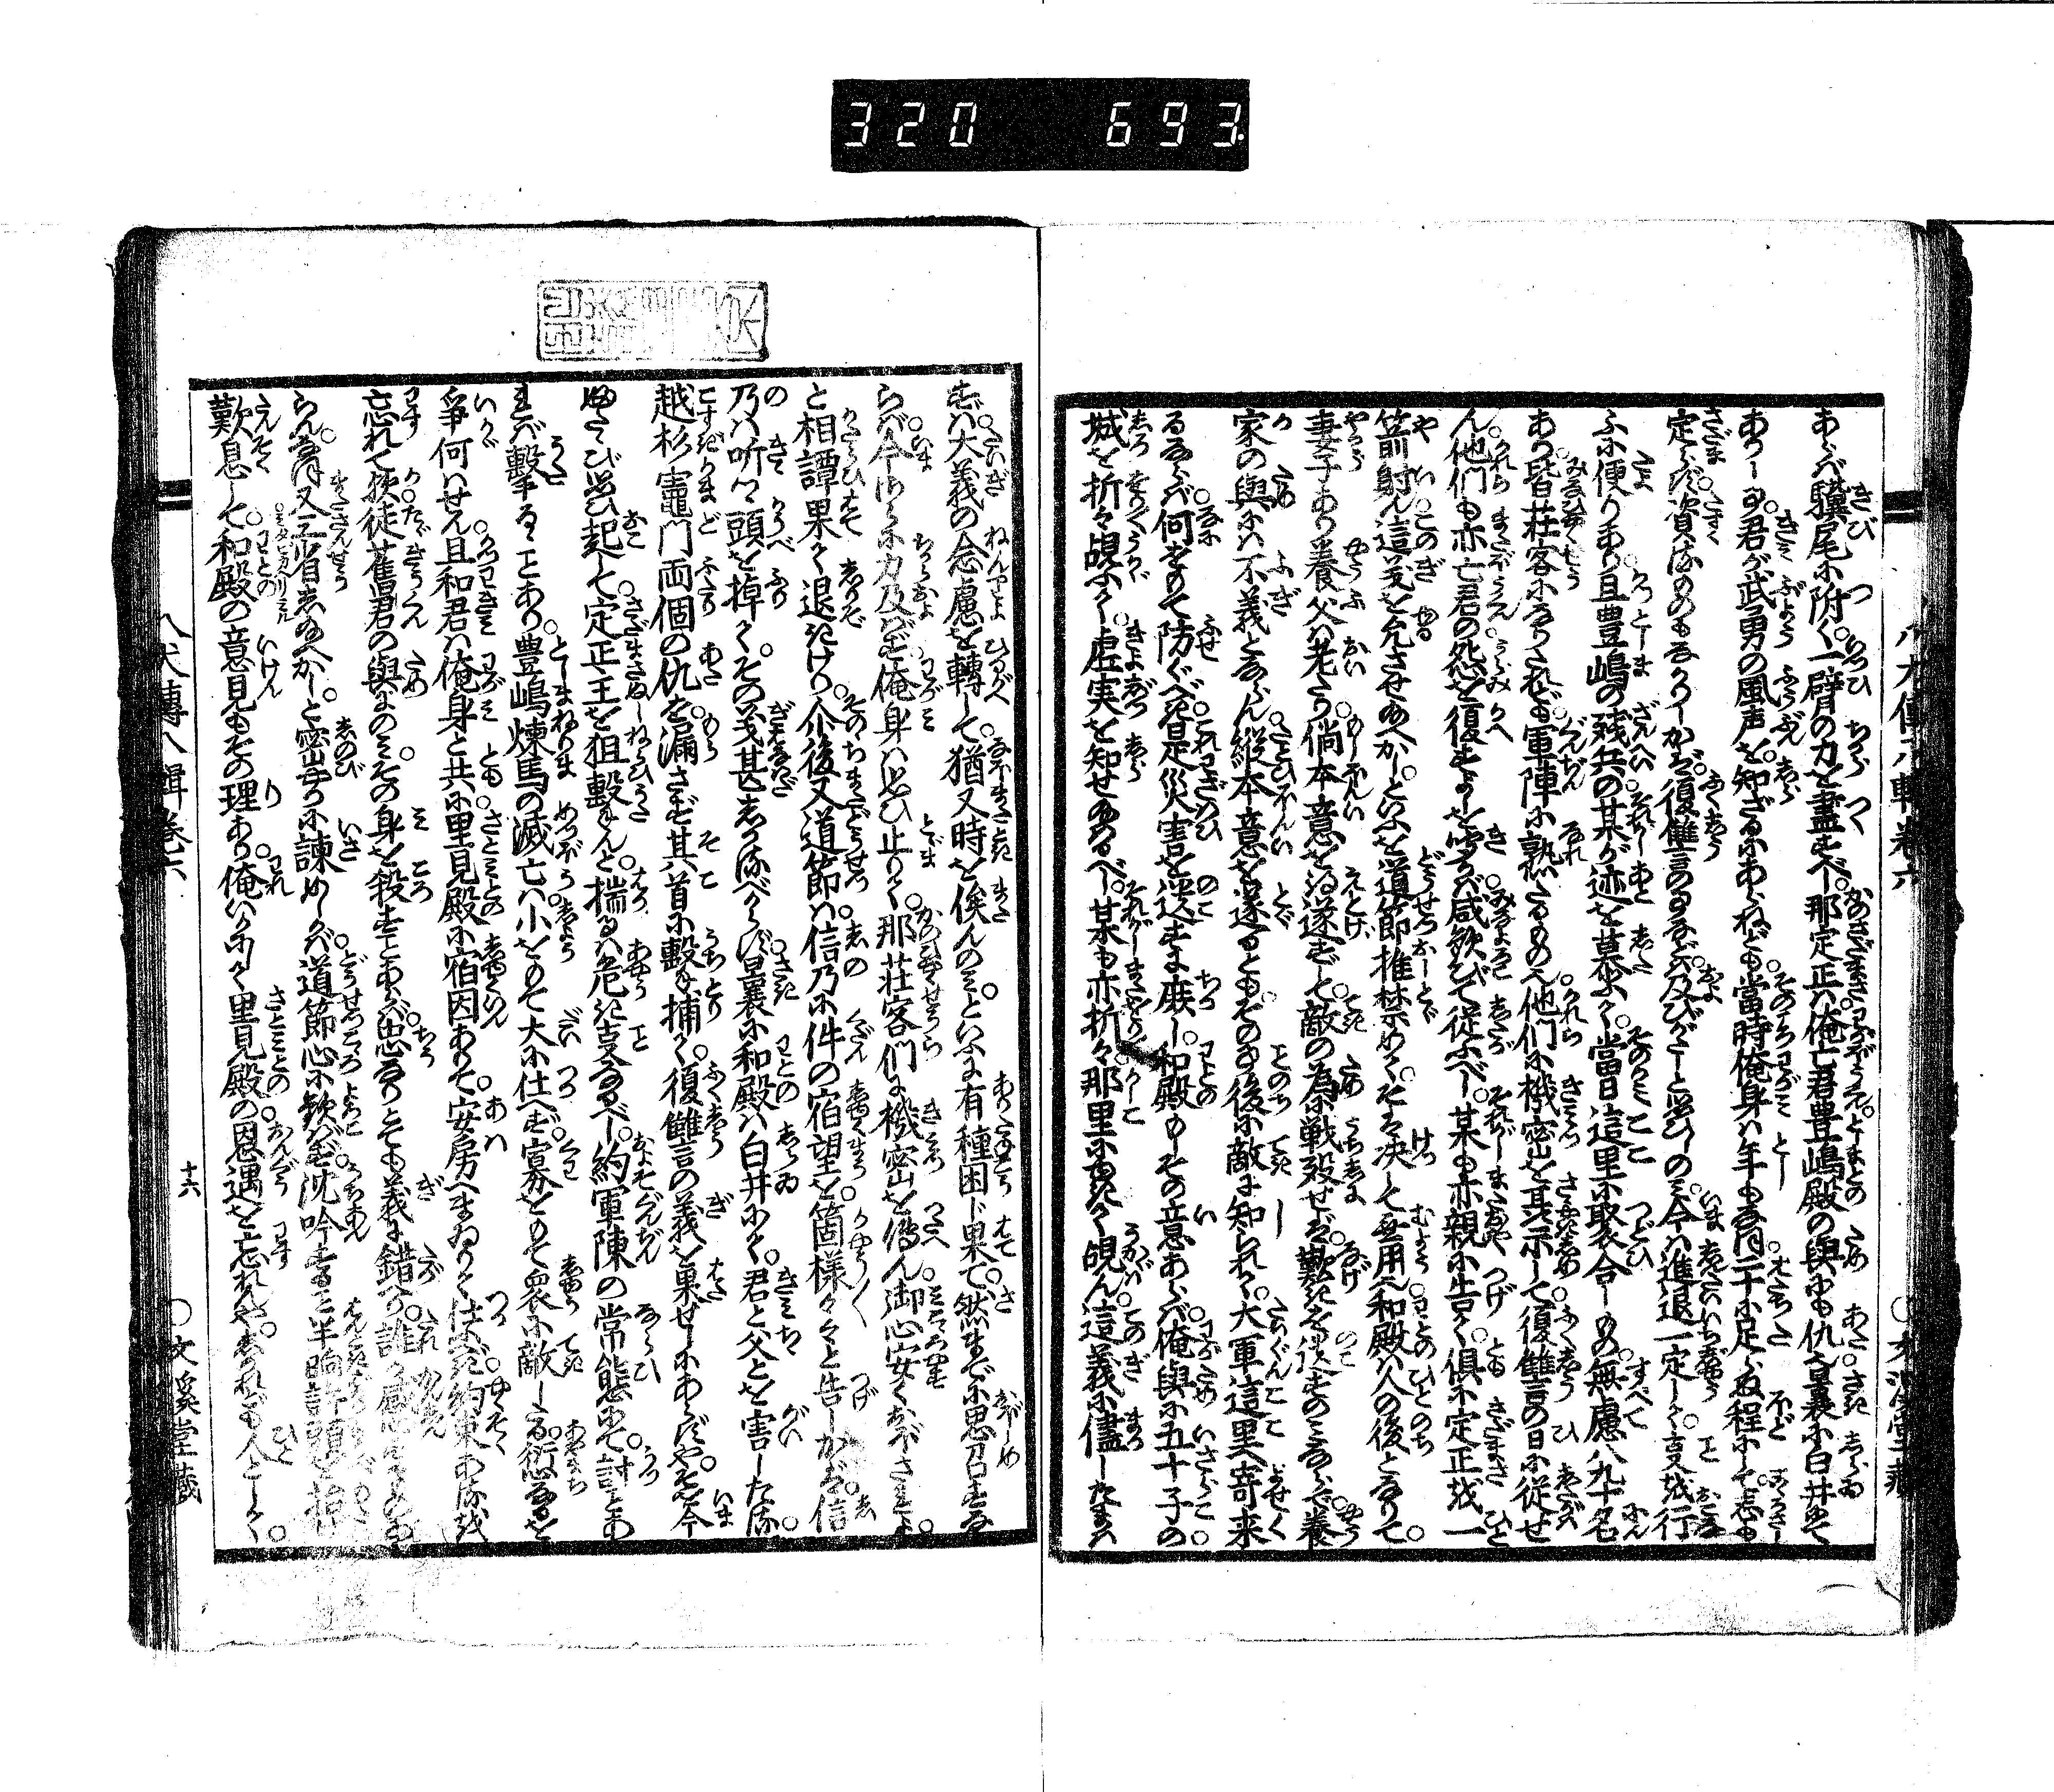 320 693
あらば驥尾に附く一臂の力を盡すべし那定正は俺亡君豊嶋殿の與にも仇也曩に白井にて
ありしが君が武勇の風声を知ざるにあらねども當時俺身は年もなほ二十に足らぬ程にて志も
定らず資るものもなかりしかば復讐言の事などは及びがたしと思ひしのみ今は進退一定して夏を行
ふに便りあり且豊嶋の残兵の某が迹を慕ふて當日這里に聚合しもの無慮八九十名
あり皆荘客になりたれども軍陣に熟たるもの也他們に機密を示して復讐言の日に従せ
ん他們も亦亡君の怨を復すよしを聞かば咸歓びて従ふべし某も亦親に告て倶に定正を一
箭射ん這義を允させ給へかしといふを道節推禁めてそは決して無用也和殿は人の後となりて
妻子あり養父は老たり倘本意を得遂ずして敵の為に戦歿せば歎きを後すのみならで養
家の與には不義とならん縦本意を遂るともその後に敵に知られて大軍這里へ寄来
るならば何をもて防ぐべき是災害を遺すに庶し和殿もしその意あらば俺與に五十子の
城を折々覘ふて虚実を知せ給ふべし某も亦折々那里に赴きて覘ん這義に儘したまは
ずは大義の念慮を轉して猶又時を俟んのみといふに有種困じ果て然までに思召すな
らば今さらに力及ばず俺身は思ひ止りて那荘客們に機密を傳へん御心安くおぼされよ
と相譚果て退きけり介後又道節は信乃に件の宿望を箇様々々と告しかば信
乃は听て頭を掉てその義甚しかるべからず曩に和殿は白井にて君と父とを害したる
越杉竈門両個の仇を漏さず其首に撃捕て復讐言の義を果せしにあらずや然を今
ふたゝび思ひ起して定正主を狙撃んと揣るは危き事なるべし約軍陳の常態にて討もあ
れば撃るゝことあり豊嶋煉馬の滅亡は小をもて大に仕へず寡をもて衆に敵したる愆なるを
争何はせん且和君は俺身と共に里見殿に宿因ありて安房へまゐりて仕ふべき約束あるを
忘れて狹徒舊君の與にのみその身を殺すことあらば忠なりとても義に錯へり誰か感ずるものあ
らん當下又三省し給へかしと密やかに諫めしかば道節心に歓ばず沈吟ずること半晌許頭を掉
歎息して和殿の意見もその理あり俺いかにして里見殿の恩遇を忘れんやしかれども人として
八犬傳八輯巻六
十六
○文溪堂藏